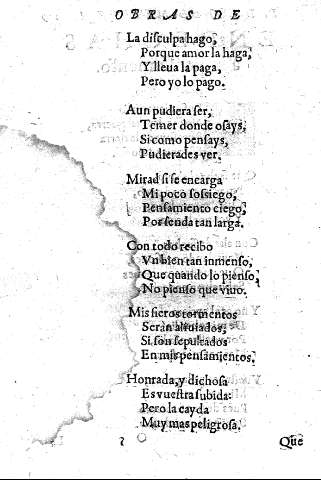 OBRAS DE
La disculpa hago,
Porque amor la haga,
Y lleua la paga,
Pero yo lo pago.
Aun pudiera ser,
Temer donde osays,
Si como pensays,
Pudierades ver.
Mirad si se encarga
Mi poco sossiego,
Pensamiento ciego,
Por senda tan larga.
Con todo recibo
Vn bien tan inmenso,
Que quando lo pienso,
No pienso que viuo.
Mis fieros tormentos
Seràn aliuiados,
Si son sepultados
En mis pensamientos.
Honrada, y dichosa
Es vuestra subida:
Pero la cayda
Muy mas peligrosa.
Que